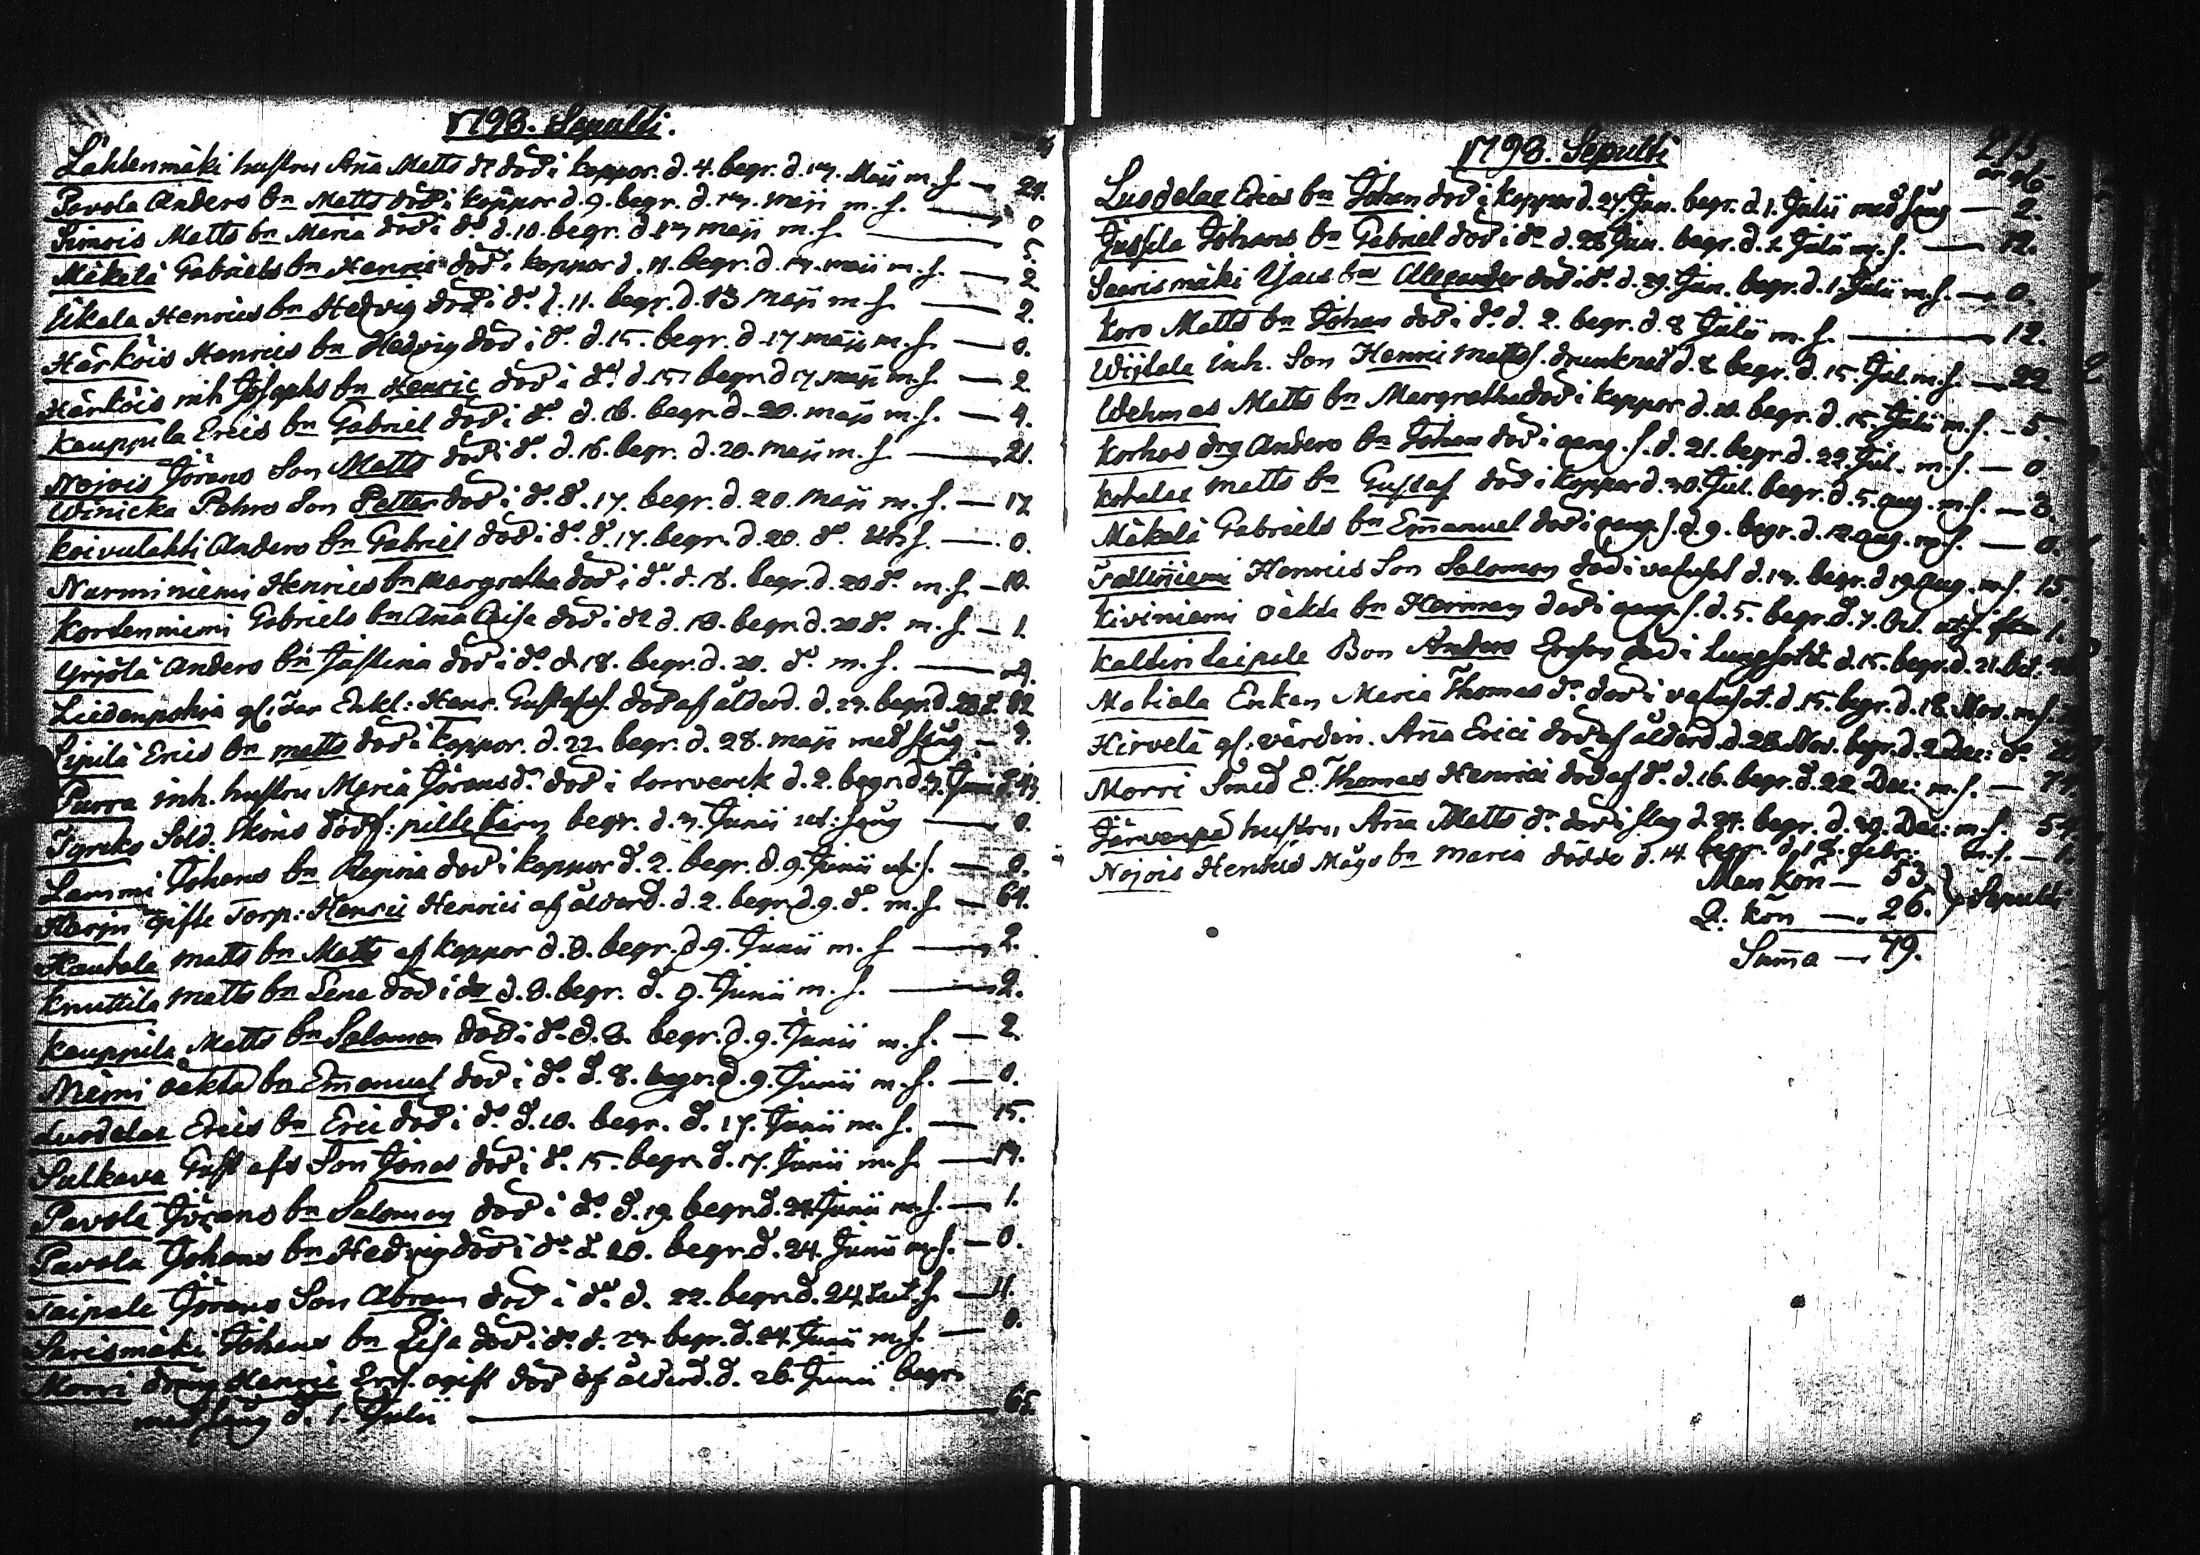 1798. Sepulti.
Lahtenmäki hustru Aña Matts dr död i koppor. d. 4. begr. d. 13. Maji m. s. — 24.
Pavola Anders bn Matts död i koppor d. 9. begr. d. 13. maji m. s. — 0
Simois Matts bn Maria död i do d. 10. begr. d. 13 maji m. s. — 5.
Mäkelä Gabriels bn Henric död i koppor d. 11. begr. d. 13. maji m. s. — 2
Eikala Henrics bn Hedvig död i do d. 11. begr. d. 13 maji m. s. — 2.
Härköis Henrics bn Hedvig död i do d. 15. begr. d. 17 maji m. s. — 0.
Härköis inh Josephs bn Henric död i do d. 15 begr. d 17 maji m. s. — 2
Kauppila Erics bn Gabriel död i do d. 16. begr. d. 20. maji m. s. — 4.
Nojois Jörans Son Matts död i do d. 16. begr. d. 20. maji m. s. — 21.
Winicka Pehrs Son Petter död i do d. 17. begr. d. 20. maji m. s. — 17
Koivulahti Anders bn Gabriel död i do d. 17. begr. d. 20. do ut. s. — 0.
Nurminiemi Henrics bn Margretha död i do d. 18. begr. d. 20 do m. s. — 10.
Kortenniemi Gabriels bn Aña Caisa död i do d. 18. begr. d. 20 do m. s. — 1.
Yrjölä Anders bn Justina död i do d. 18. begr. d. 20. do m. s. —
Liedenpohja gl: Enkl: Henr. Gustafss. död af ålderd. d. 23. begr. d.
Sipilä Erics bn matts död i koppor. d. 22. begr. d. 28. maji med sång — 3.
Purra inh. hustru Maria Jörans dr död i d. 2. begr. d. 3. Junii
Tyreks Sold. Sköns dödf: pille barn begr. d. 3. Junii ut: sång — 0.
Lammi Johans bn Regina död i koppor d. 2. begr. d. 9. Junii ut. s. — 0.
Harju gifte Torp: Henric Henrici af ålderd. d. 2. begr. d. 9. do m. s. — 64.
Hautala matts bn Matts af koppor d. 8. begr. d. 9. Junii m. s. — 2.
Knuttila Matts bn Lena död i do d. 8. begr. d. 9. Junii m. s. — 2.
Kauppila Matts bn Salomon död i do d. 8. begr. d. 9. Junii m. s. — 2
Niemi oäkta bn Em̃anuel död i do d. 8. begr. d. 9. Junii m. s. — 0.
Luodelax Erics bn Eric död i do d. 10. begr. d. 17. Junii m. s. — 15.
Sulkava Gustafs Son Jonas död i do 15. begr. d. 17. Junii m. s. — 13.
Pavola Jörans bn Salomon död i do d. 19. begr. d. 24 Junii m. s. — 1.
Pavola Johans bn Hedvig död i do d. 20. begr. d. 24. Junii m. s. — 0.
Taipale Jörans Son Abram död i do d. 22. begr. d. 24 ut. s. — 11.
Sarismäki Johans bn Lisa död i do d. 23. begr. d. 24 Junii m. s. — 0.
Morri dreng Henric Ers. ogift död af ålderd. d. 26. Junii begr.
med sång d. 1. Julii — 65.
1798. Sepulti
215
Luodelax Erics bn Johan död i koppor d. 27. Jun. begr. d. 1. Julii med sång — 2.
Jussila Johans bn Gabriel död i do d. 28 Jun. begr. d. 1. Julii m. s. — 12.
Saarismäki Isacs bn Alexander död i do d. 29. Jun. begr. d. 1. Julii m. s. — 0.
Koro Matts bn Johan död i do d. 2. begr. d. 8 Julii m. s. — 12.
Wijtala inh. Son Henric Mattss. drunknat d. 8 begr. d. 15. Jul. m. s. — 22
Wehmas Matts bn Margretha död i koppor d. 10. begr. d. 15. Julii m. s. — 5.
Korhos drg Anders bn Johan död i geng. s. d. 21. begr. d. 22. Jul. m. s. — 0
Kotalax matts bn Gustaf död i koppor d. 30. Jul. begr. d. 5. aug. m. s. — 3.
Mäkelä Gabriels bn Em̃anuel död i gang. s. d. 9. begr. d. 12. aug. m. s. — 0.
Henrics Son Salomon död i d. 13. begr. d 19. Aug. m. s. 15.
Kiviniemi oäkta bn Herman död i gang. s. d. 5. begr. d. 7. Oct. ut. s. 1.
Bon Anders Ersson död i Lungsot d. 15. begr. d. 21. Oct:
Matiala Enkan Maria Thomas dr död i d. 15. begr. d. 18. Nov. m. s.
Hirvelä gl: värdin. Aña Erici död af ålderd. d. 28. Nov. begr. d. 2 Dec: do
Morri Smed E. Thomas Henrici död af do d. 16. begr. d. 22. Dec: m. s. —
Järvenpä hustru Aña Matts dr död i slag d. 24. begr. d. 30. Dec: m. s. 54.
Nojois Henrics Mågs bn Maria dödde d. 14. begr. d. 18. Febr: m. s. — 1.
Man kön — 53.
Q. kön — 26.
} Sepulti
Sum̃a — 79.